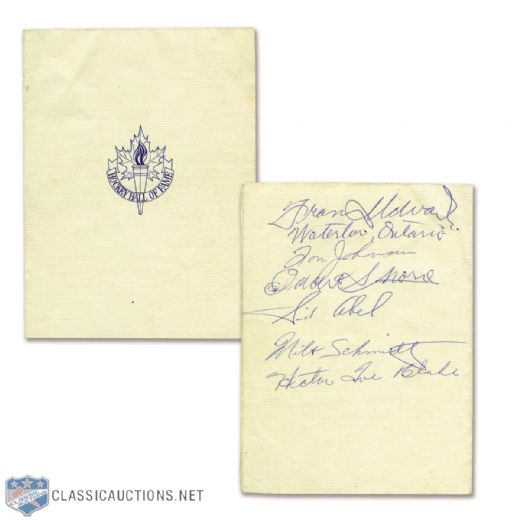 HOCKEY HALL OF FAME
Fran Udvari
Waterloo, Ontario
Tom Johnson
Eddie Shore
Sid Abel
Milt Schmidt
Hector Toe Blake
CLASSIC
CLASSICAUCTIONS.NET